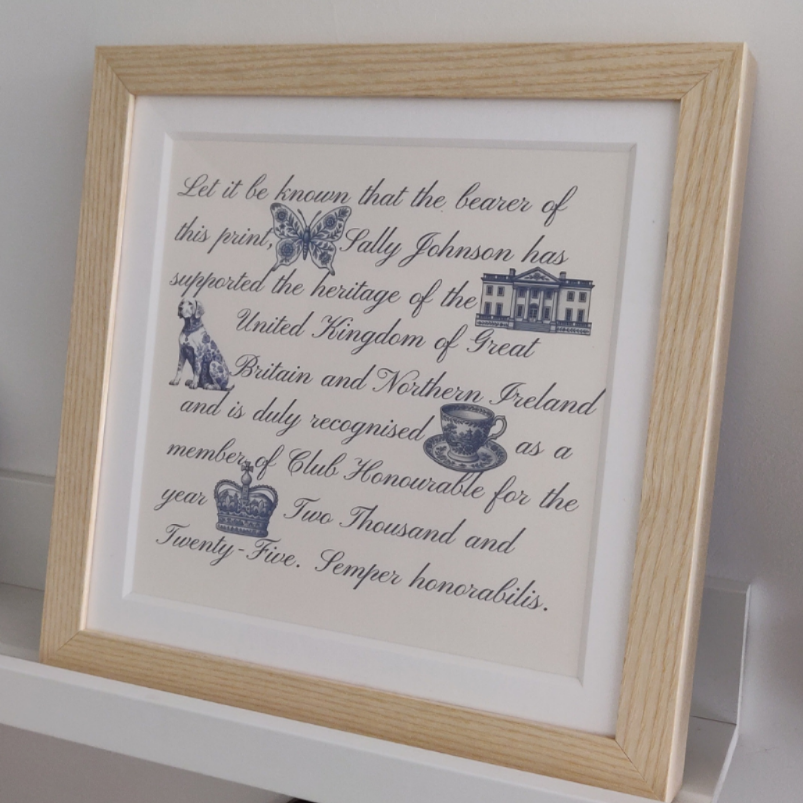 Let it be known that the bearer of
this print, Sally Johnson has
supported the heritage of the
United Kingdom of Great
Britain and Northern Ireland
and is duly recognised as a
member of Club Honourable for the
year Two Thousand and
Twenty-Five. Semper honorabilis.